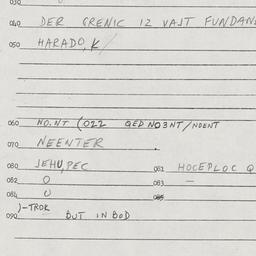 030
040 DER GRENIC 12 VAST FUNDAN
050 HARADO, K
060 NO.NT (022 QED NO3NT/NOENT
070 NEENTER .
080 JEHU, PEC 081 HOCEPLOC Q
082 O 083 —
084 U 085
)-TROR
090 BUT IN BOD